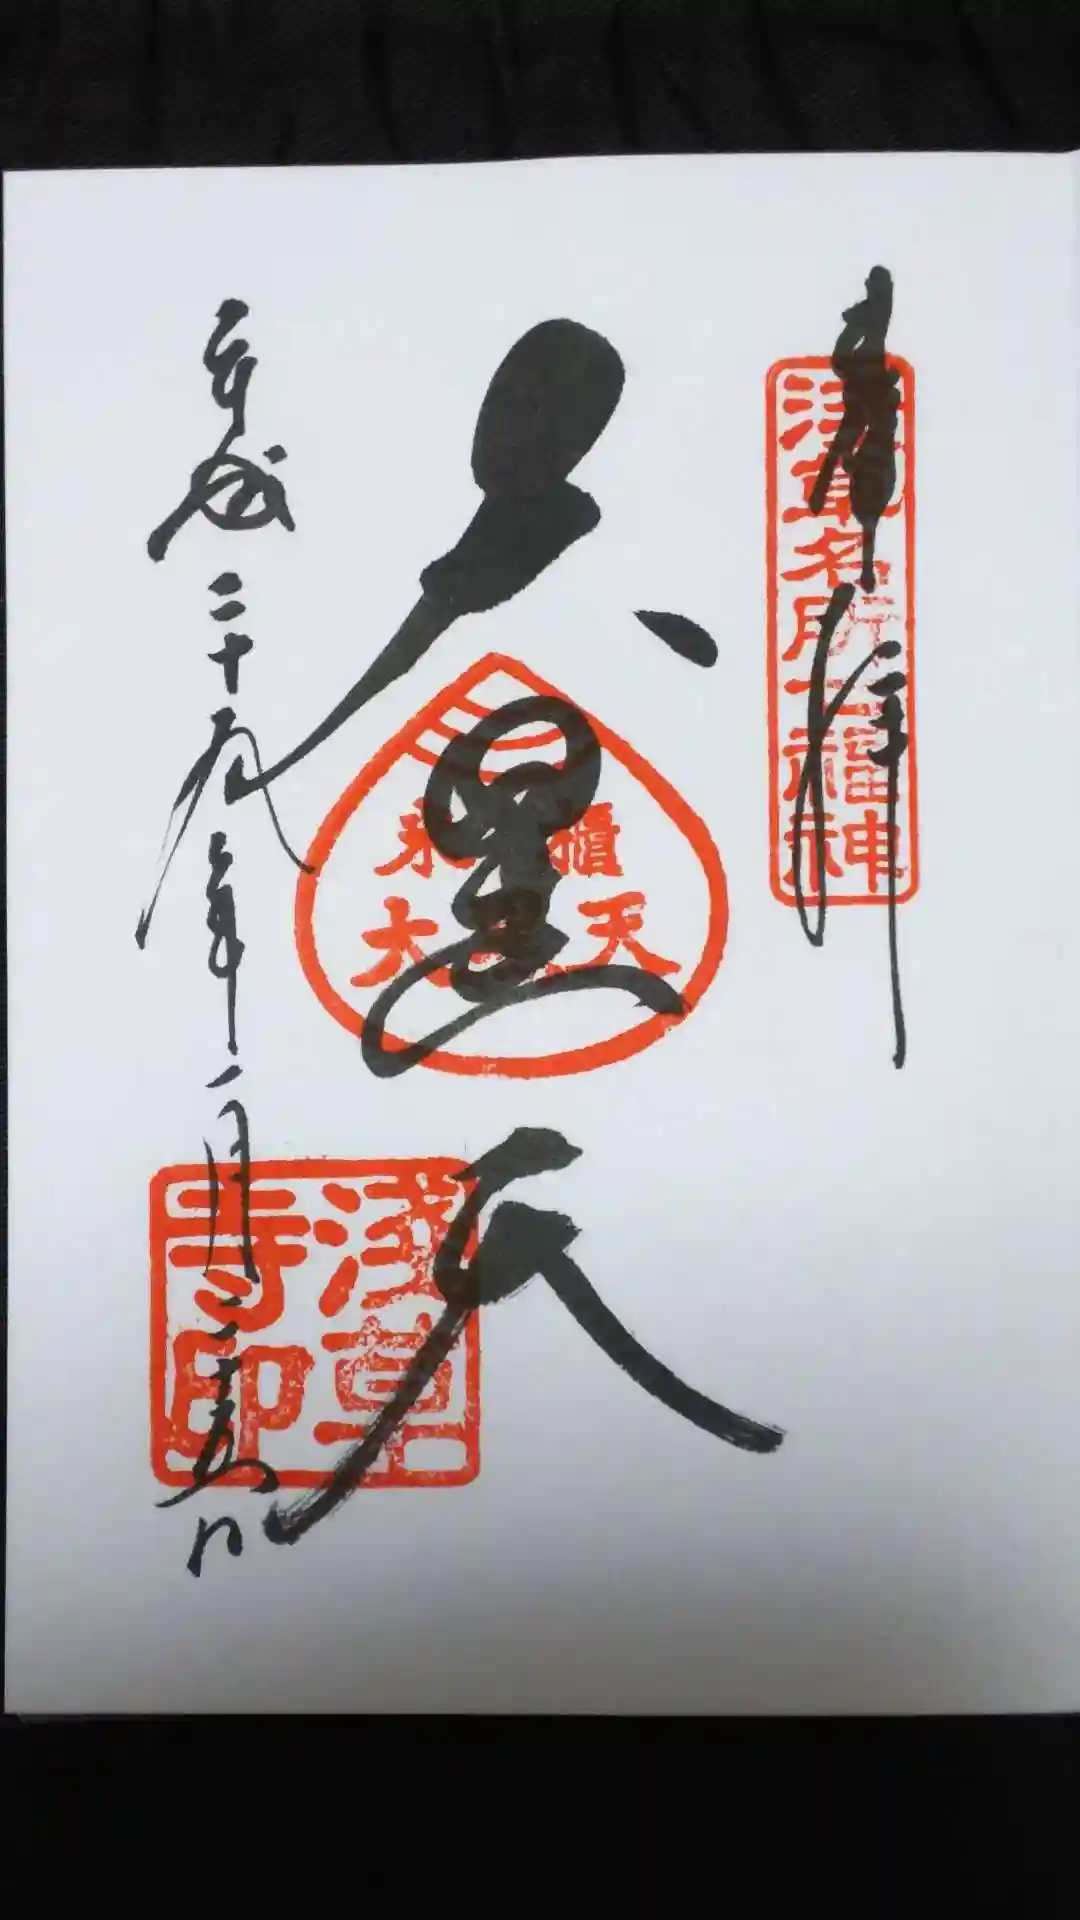 奉拝
浅草名所七福神
大黒天
米櫃
大黒天
平成二十九年一月二十五日
浅草
寺印